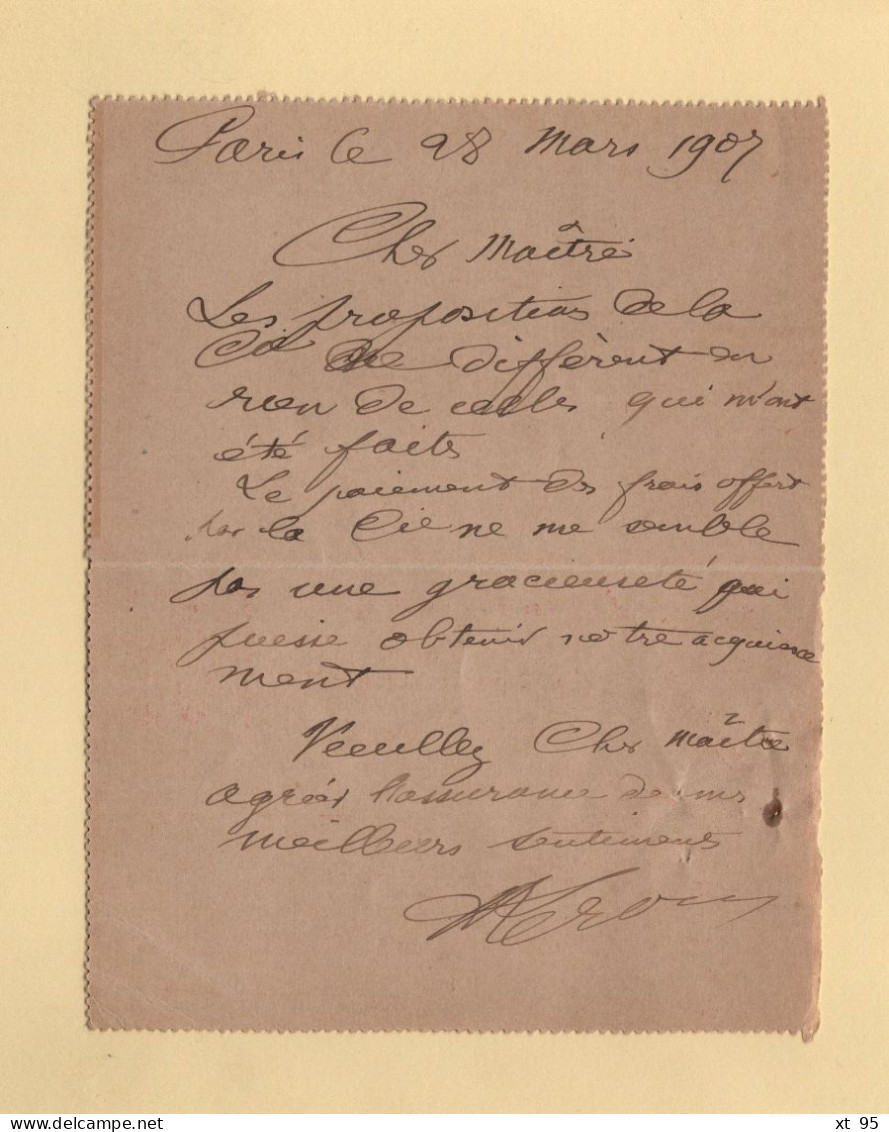 Paris le 28 Mars 1907
Cher Maître
Les propositions de la
Cie ne diffèrent en
rien de celles qui m'ont
été faites
Le paiement des frais offert
par la Cie ne me semble
pas une gracieuseté qui
puisse obtenir notre acquiesce
ment
Veuillez Cher Maître
agréer l'assurance de mes
meilleurs sentiments
delcampe.net
xt 95